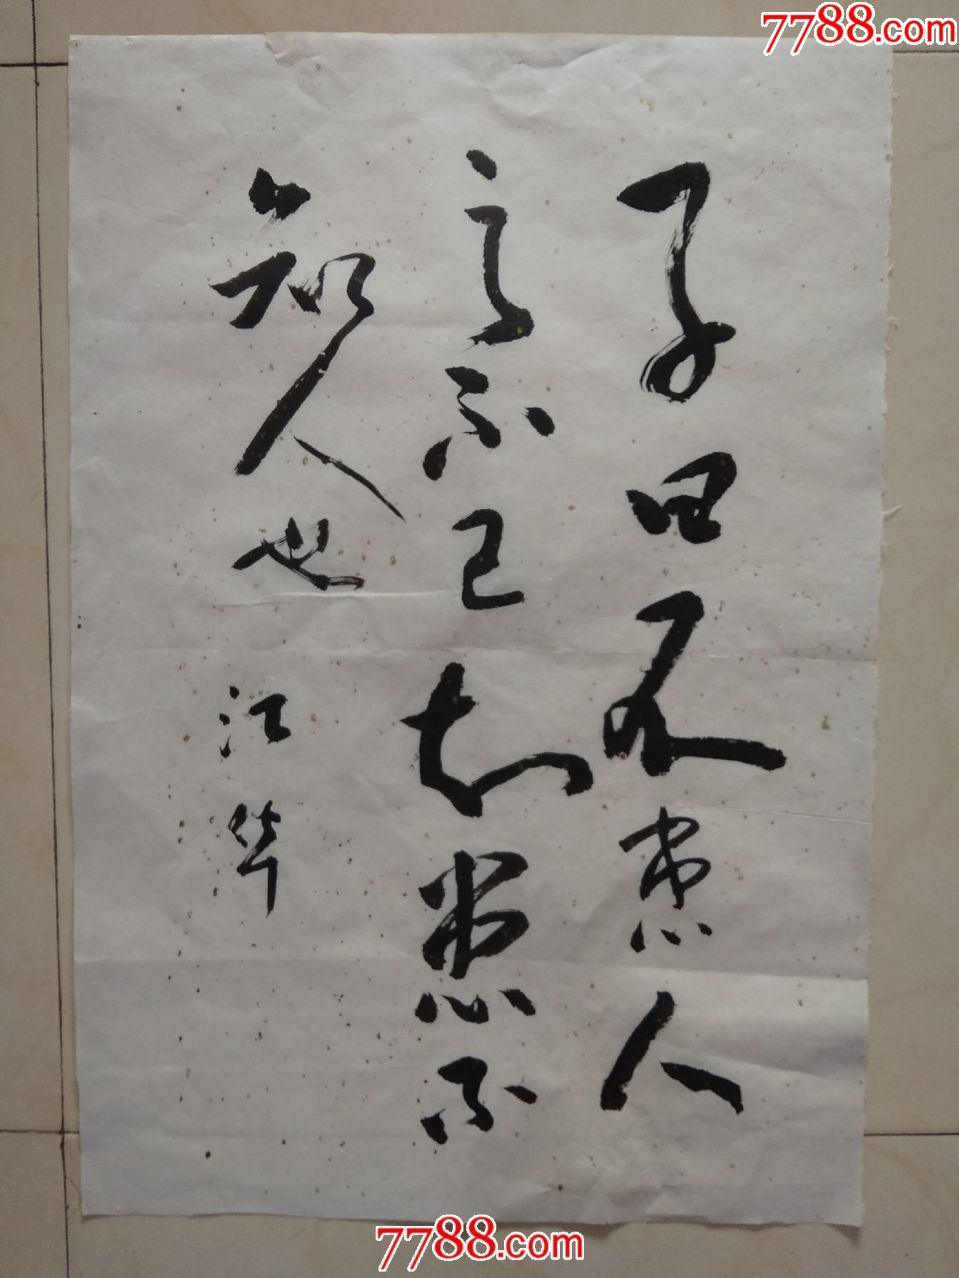 7788.com
子曰不患人
之不己知患不
知人也
江华
7788.com